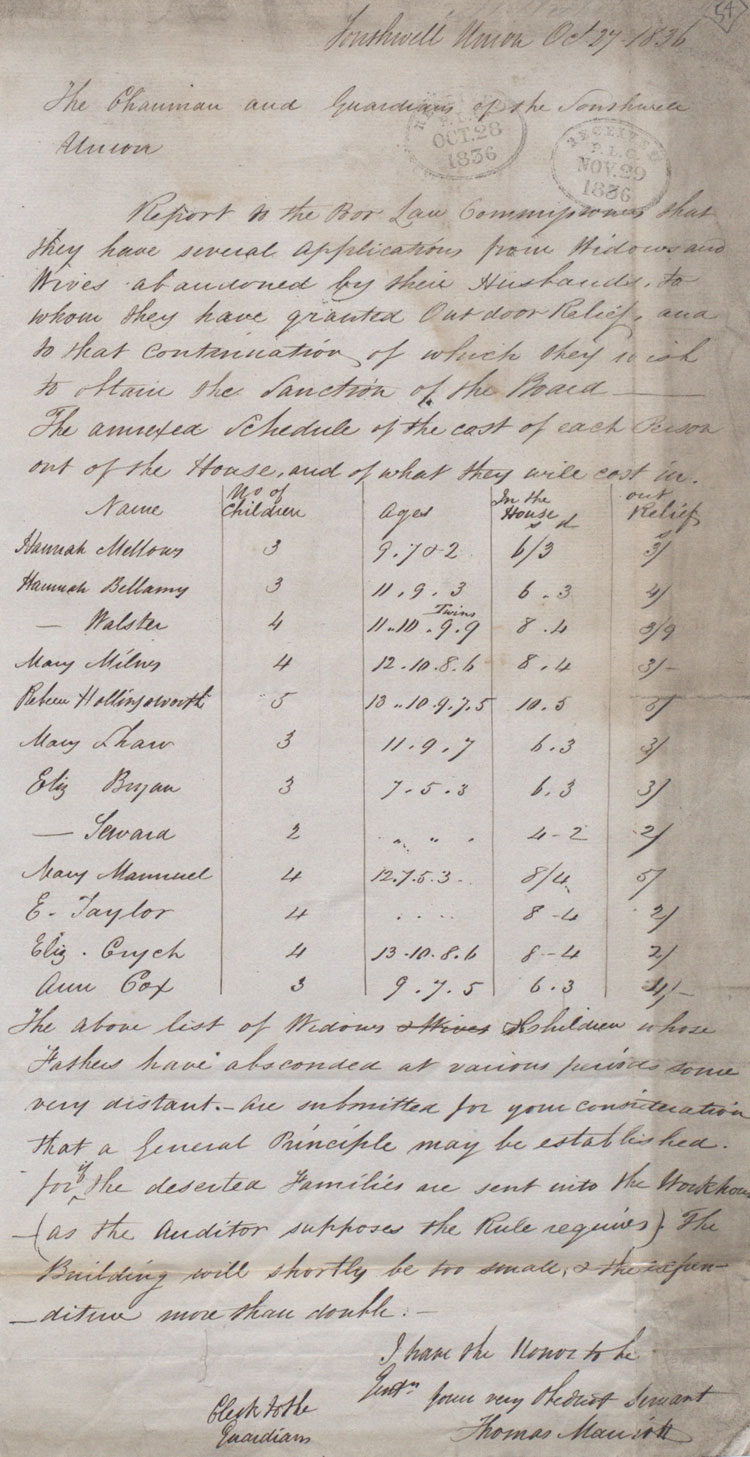 54
Southwell Union Oct 27 1836
The Chairman and Guardians of the Southwell
Union
RECEIVED
P.L.C.
OCT. 28
1836
RECEIVED
P.L.C.
NOV. 29
1836
Report to the Poor Law Commissioners that
they have several applications from Widows and
Wives abandoned by their Husbands, to
whom they have granted Out door Relief, and
to that Continuation of which they wish
to obtain the Sanction of the Board
The annexed Schedule of the cost of each Person
out of the House, and of what they will cost in.
Name No of Children Ages In the House s d out Relief s
Hannah Mellows 3 9.7 & 2 6/3 3/
Hannah Bellamy 3 11.9.3 6.3 4/
— Walster 4 11.10.9.9 Twins 8.4 3/9
Mary Milns 4 12.10.8.6 8.4 3/-
Hollingsworth 5 13.10.9.7.5 10.5 5/
Mary Shaw 3 11.9.7 6.3 3/
Eliz Bryan 3 7.5.3 6.3 3/
— Seward 2 " " . 4-2 2/
Mary Mannuel 4 12.7.5.3 8/4 5/
E. Taylor 4 .... 8-4 2/
Eliz. Crych 4 13-10.8.6 8-4 2/
Ann Cox 3 9.7.5 6.3 /-
The above list of Widows & Wives & Children whose
Fathers have absconded at various periods some
very distant.- are submitted for your consideration
that a General Principle may be established.
for if the deserted Families are sent into the Workhouse
-(as the Auditor supposes the Rule requires). The
Building will shortly be too small, & the expen-
-diture more than double.-
I have the Honor to be
Gentn your very Obedient Servant
Clerk to the
Guardians
Thomas Marriott